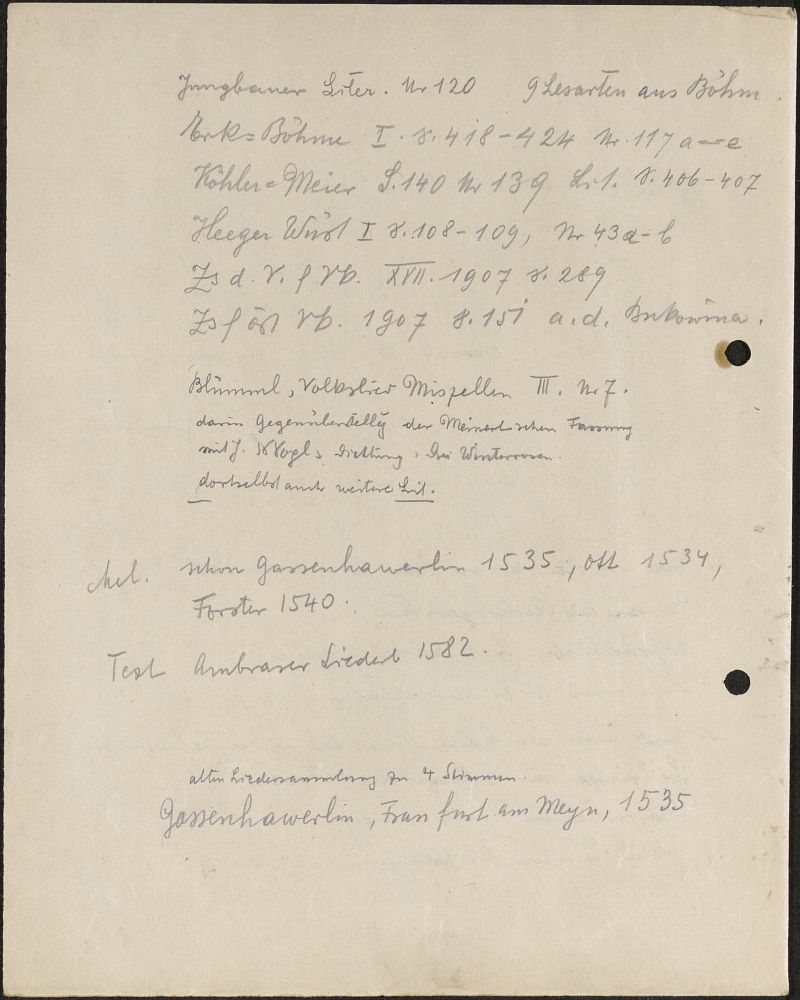 Jungbauer Liter. Nr 120 9 Lesarten aus Böhm.
Erk=Böhme I. S. 418-424 Nr. 117 a-e
Köhler=Meier S. 140 Nr 139 Lit. S. 406-407
Heeger Wüst I S. 108-109, Nr 43a-b
Zs d. V. f Vk. XVII. 1907 S. 289
Zs f öst Vk. 1907 S. 151 a. d. Bukowina.
Blümml, Volkslied Miszellen III. Nr 7.
darin Gegenüberstellg der Meinertschen Fassung
mit J. N Vogls Dichtung: Drei Winterrosen.
dortselbst auch weitere Lit.
Mel. schon Gassenhawerlin 1535, Ott 1534,
Forster 1540.
Text Ambraser Liederb 1582.
alten Liedersammlung zu 4 Stimmen.
Gassenhawerlin, Franfurt am Meyn, 1535